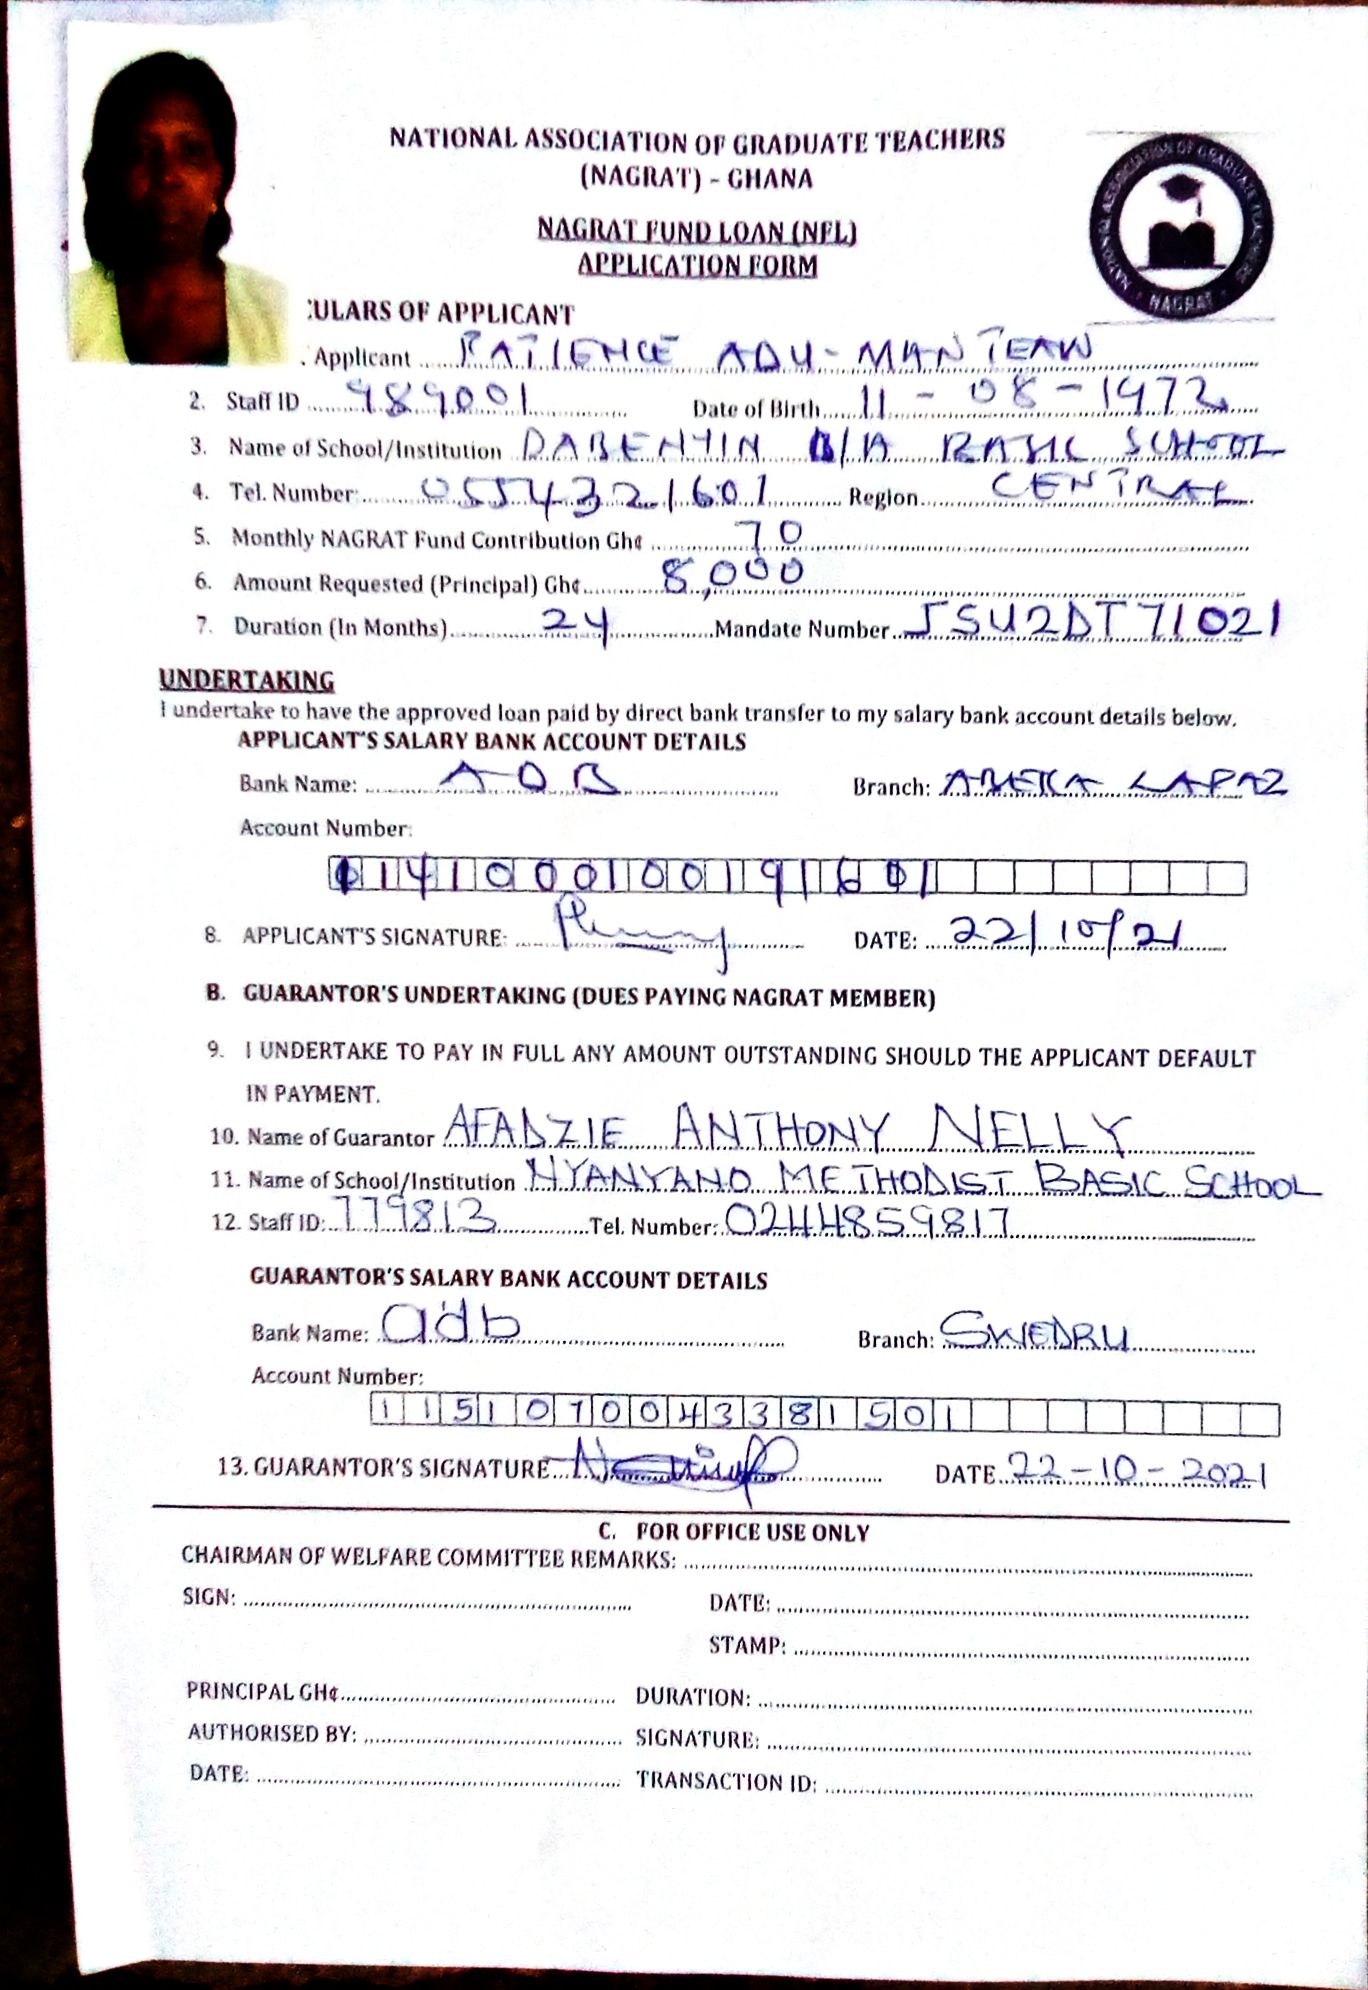 NATIONAL ASSOCIATION OF GRADUATE TEACHERS
(NAGRAT) - GHANA
NATIONAL ASSOCIATION OF GRADUATE TEACHERS
NAGRAT
NAGRAT FUND LOAN (NFL)
APPLICATION FORM
CULARS OF APPLICANT
. Applicant PATIENCE ADU-MANTEAW
2. Staff ID 989001 Date of Birth 11-08-1972
3. Name of School/Institution DABENYIN D/A BASIC SCHOOL
4. Tel. Number: 0554321601 Region CENTRAL
5. Monthly NAGRAT Fund Contribution Gh¢ 70
6. Amount Requested (Principal) Gh¢ 8,000
7. Duration (In Months) 24 Mandate Number JSU2DT71021
UNDERTAKING
I undertake to have the approved loan paid by direct bank transfer to my salary bank account details below.
APPLICANT'S SALARY BANK ACCOUNT DETAILS
Bank Name: ADB Branch: ABEKA LAPAZ
Account Number:
141000100191601
8. APPLICANT'S SIGNATURE: DATE: 22/10/21
B. GUARANTOR'S UNDERTAKING (DUES PAYING NAGRAT MEMBER)
9. I UNDERTAKE TO PAY IN FULL ANY AMOUNT OUTSTANDING SHOULD THE APPLICANT DEFAULT
IN PAYMENT.
10. Name of Guarantor AFADZIE ANTHONY NELLY
11. Name of School/Institution NYANYANO METHODIST BASIC SCHOOL
12. Staff ID: 779813 Tel. Number: 0244859817
GUARANTOR'S SALARY BANK ACCOUNT DETAILS
Bank Name: adb Branch: SWEDRU
Account Number:
1151070043381501
13. GUARANTOR'S SIGNATURE DATE 22-10-2021
C. FOR OFFICE USE ONLY
CHAIRMAN OF WELFARE COMMITTEE REMARKS:
SIGN: DATE:
STAMP:
PRINCIPAL GH¢ DURATION:
AUTHORISED BY: SIGNATURE:
DATE: TRANSACTION ID: